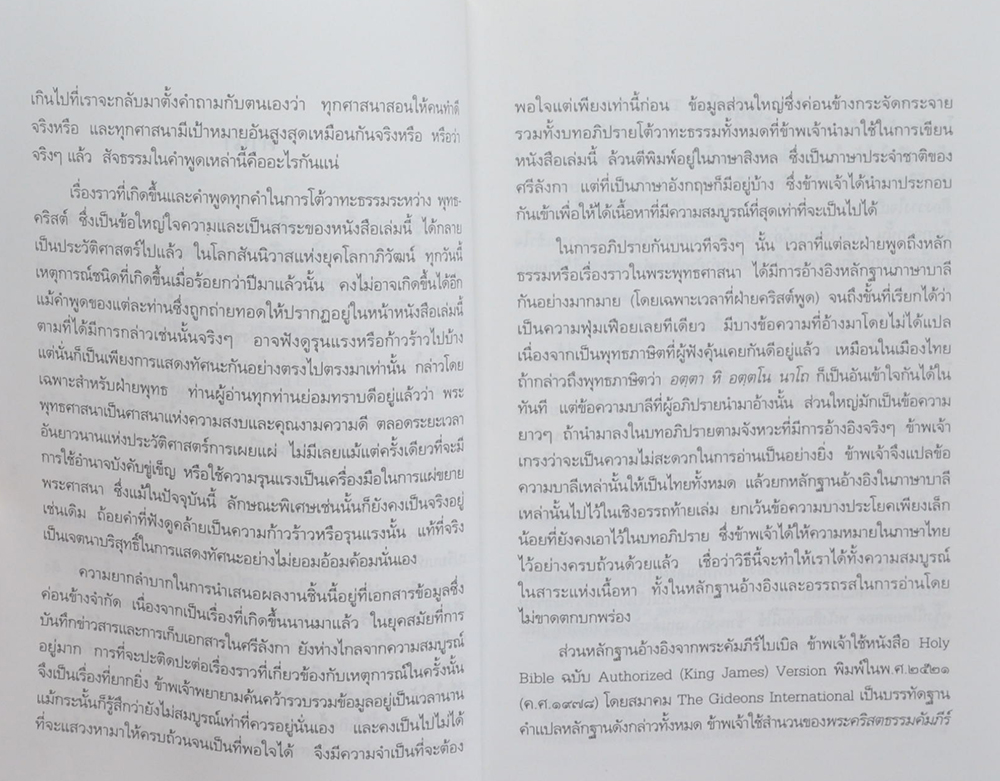 เกินไปที่เราจะกลับมาตั้งคำถามกับตนเองว่า ทุกศาสนาสอนให้คนทำดี
จริงหรือ และทุกศาสนามีเป้าหมายอันสูงสุดเหมือนกันจริงหรือ หรือว่า
จริงๆ แล้ว สัจธรรมในคำพูดเหล่านี้คืออะไรกันแน่
เรื่องราวที่เกิดขึ้นและคำพูดทุกคำในการโต้วาทะธรรมระหว่าง พุทธ-
คริสต์ ซึ่งเป็นข้อใหญ่ใจความและเป็นสาระของหนังสือเล่มนี้ ได้กลาย
เป็นประวัติศาสตร์ไปแล้ว ในโลกสันนิวาสแห่งยุคโลกาภิวัฒน์ ทุกวันนี้
เหตุการณ์ชนิดที่เกิดขึ้นเมื่อร้อยกว่าปีมาแล้วนั้น คงไม่อาจเกิดขึ้นได้อีก
แม้คำพูดของแต่ละท่านซึ่งถูกถ่ายทอดให้ปรากฏอยู่ในหน้าหนังสือเล่มนี้
ตามที่ได้มีการกล่าวเช่นนั้นจริงๆ อาจฟังดูรุนแรงหรือก้าวร้าวไปบ้าง
แต่นั่นก็เป็นเพียงการแสดงทัศนะกันอย่างตรงไปตรงมาเท่านั้น กล่าวโดย
เฉพาะสำหรับฝ่ายพุทธ ท่านผู้อ่านทุกท่านย่อมทราบดีอยู่แล้วว่า พระ
พุทธศาสนาเป็นศาสนาแห่งความสงบและคุณงามความดี ตลอดระยะเวลา
อันยาวนานแห่งประวัติศาสตร์การเผยแผ่ ไม่มีเลยแม้แต่ครั้งเดียวที่จะมี
การใช้อำนาจบังคับขู่เข็ญ หรือใช้ความรุนแรงเป็นเครื่องมือในการแผ่ขยาย
พระศาสนา ซึ่งแม้ในปัจจุบันนี้ ลักษณะพิเศษเช่นนั้นก็ยังคงเป็นจริงอยู่
เช่นเดิม ถ้อยคำที่ฟังดูคล้ายเป็นความก้าวร้าวหรือรุนแรงนั้น แท้ที่จริง
เป็นเจตนาบริสุทธิ์ในการแสดงทัศนะอย่างไม่ยอมอ้อมค้อมนั่นเอง
ความยากลำบากในการนำเสนอผลงานชิ้นนี้อยู่ที่เอกสารข้อมูลซึ่ง
ค่อนข้างจำกัด เนื่องจากเป็นเรื่องที่เกิดขึ้นนานมาแล้ว ในยุคสมัยที่การ
บันทึกข่าวสารและการเก็บเอกสารในศรีลังกา ยังห่างไกลจากความสมบูรณ์
อยู่มาก การที่จะปะติดปะต่อเรื่องราวที่เกี่ยวข้องกับเหตุการณ์ในครั้งนั้น
จึงเป็นเรื่องที่ยากยิ่ง ข้าพเจ้าพยายามค้นคว้ารวบรวมข้อมูลอยู่เป็นเวลานาน
แม้กระนั้นก็รู้สึกว่ายังไม่สมบูรณ์เท่าที่ควรอยู่นั่นเอง และคงเป็นไปไม่ได้
ที่จะแสวงหามาให้ครบถ้วนจนเป็นที่พอใจได้ จึงมีความจำเป็นที่จะต้อง
พอใจแต่เพียงเท่านี้ก่อน ข้อมูลส่วนใหญ่ซึ่งค่อนข้างกระจัดกระจาย
รวมทั้งบทอภิปรายโต้วาทะธรรมทั้งหมดที่ข้าพเจ้านำมาใช้ในการเขียน
หนังสือเล่มนี้ ล้วนตีพิมพ์อยู่ในภาษาสิงหล ซึ่งเป็นภาษาประจำชาติของ
ศรีลังกา แต่ที่เป็นภาษาอังกฤษก็มีอยู่บ้าง ซึ่งข้าพเจ้าได้นำมาประกอบ
กันเข้าเพื่อให้ได้เนื้อหาที่มีความสมบูรณ์ที่สุดเท่าที่จะเป็นไปได้
ในการอภิปรายกันบนเวทีจริงๆ นั้น เวลาที่แต่ละฝ่ายพูดถึงหลัก
ธรรมหรือเรื่องราวในพระพุทธศาสนา ได้มีการอ้างอิงหลักฐานภาษาบาลี
กันอย่างมากมาย (โดยเฉพาะเวลาที่ฝ่ายคริสต์พูด) จนถึงขั้นที่เรียกได้ว่า
เป็นความฟุ่มเฟือยเลยทีเดียว มีบางข้อความที่อ้างมาโดยไม่ได้แปล
เนื่องจากเป็นพุทธภาษิตที่ผู้ฟังคุ้นเคยกันดีอยู่แล้ว เหมือนในเมืองไทย
ถ้ากล่าวถึงพุทธภาษิตว่า อตฺตา หิ อตฺตโน นาโถ ก็เป็นอันเข้าใจกันได้ใน
ทันที แต่ข้อความบาลีที่ผู้อภิปรายนำมาอ้างนั้น ส่วนใหญ่มักเป็นข้อความ
ยาวๆ ถ้านำมาลงในบทอภิปรายตามจังหวะที่มีการอ้างอิงจริงๆ ข้าพเจ้า
เกรงว่าจะเป็นความไม่สะดวกในการอ่านเป็นอย่างยิ่ง ข้าพเจ้าจึงแปลข้อ
ความบาลีเหล่านั้นให้เป็นไทยทั้งหมด แล้วยกหลักฐานอ้างอิงในภาษาบาลี
เหล่านั้นไปไว้ในเชิงอรรถท้ายเล่ม ยกเว้นข้อความบางประโยคเพียงเล็ก
น้อยที่ยังคงเอาไว้ในบทอภิปราย ซึ่งข้าพเจ้าได้ให้ความหมายในภาษาไทย
ไว้อย่างครบถ้วนด้วยแล้ว เชื่อว่าวิธีนี้จะทำให้เราได้ทั้งความสมบูรณ์
ในสาระแห่งเนื้อหา ทั้งในหลักฐานอ้างอิงและอรรถรสในการอ่านโดย
ไม่ขาดตกบกพร่อง
ส่วนหลักฐานอ้างอิงจากพระคัมภีร์ไบเบิล ข้าพเจ้าใช้หนังสือ Holy
Bible ฉบับ Authorized (King James) Version พิมพ์ในพ.ศ.๒๕๒๑
(ค.ศ.๑๙๗๘) โดยสมาคม The Gideons International เป็นบรรทัดฐาน
คำแปลหลักฐานดังกล่าวทั้งหมด ข้าพเจ้าใช้สำนวนของพระคริสตธรรมคัมภีร์